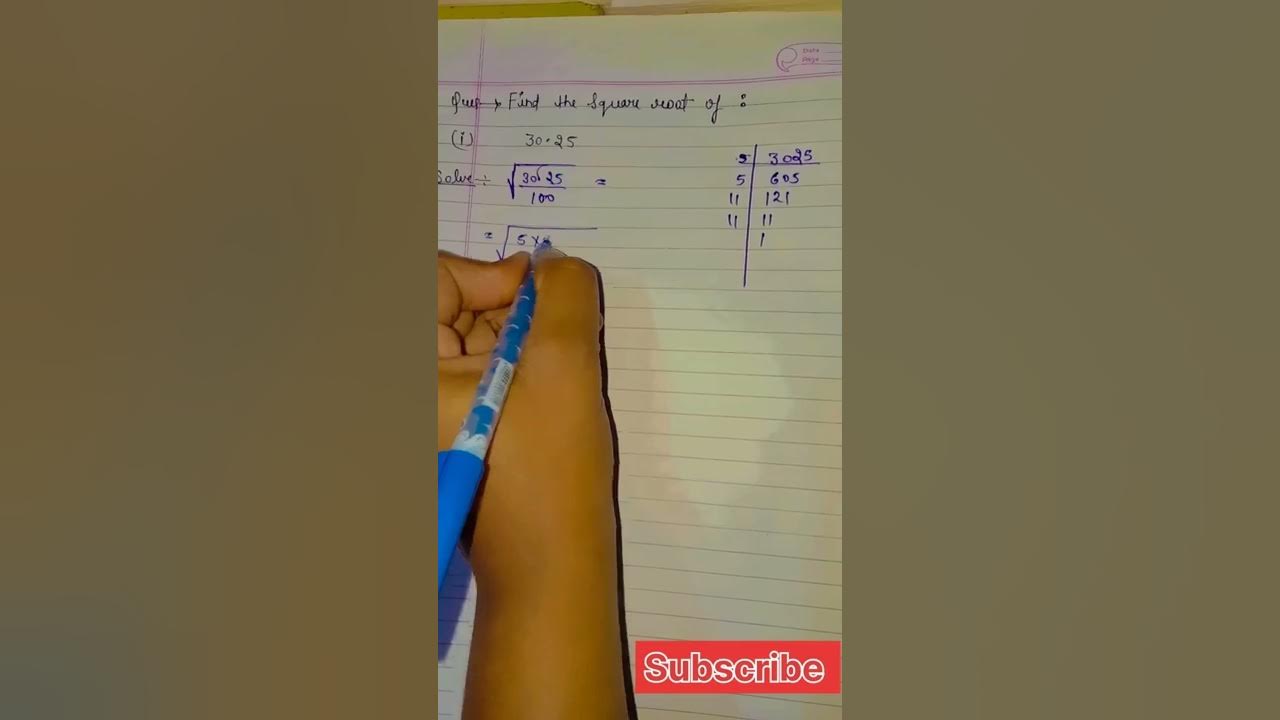 Date
Page
Ques → Find the Square root of :
(i) 30.25
Solve ÷ √30.25/100 =
= √5×5
5 | 3025
5 | 605
11 | 121
11 | 11
1
Subscribe